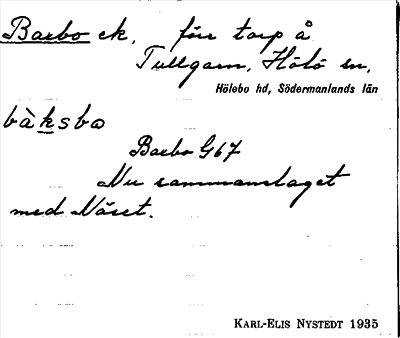 Baebo ek, förr torp å
Tullgarn, Hölö sn,
Hölebo hd, Södermanlands län
bàksbo
Baebo G67
Nu sammanslaget
med Näset.
KARL-ELIS NYSTEDT 1935